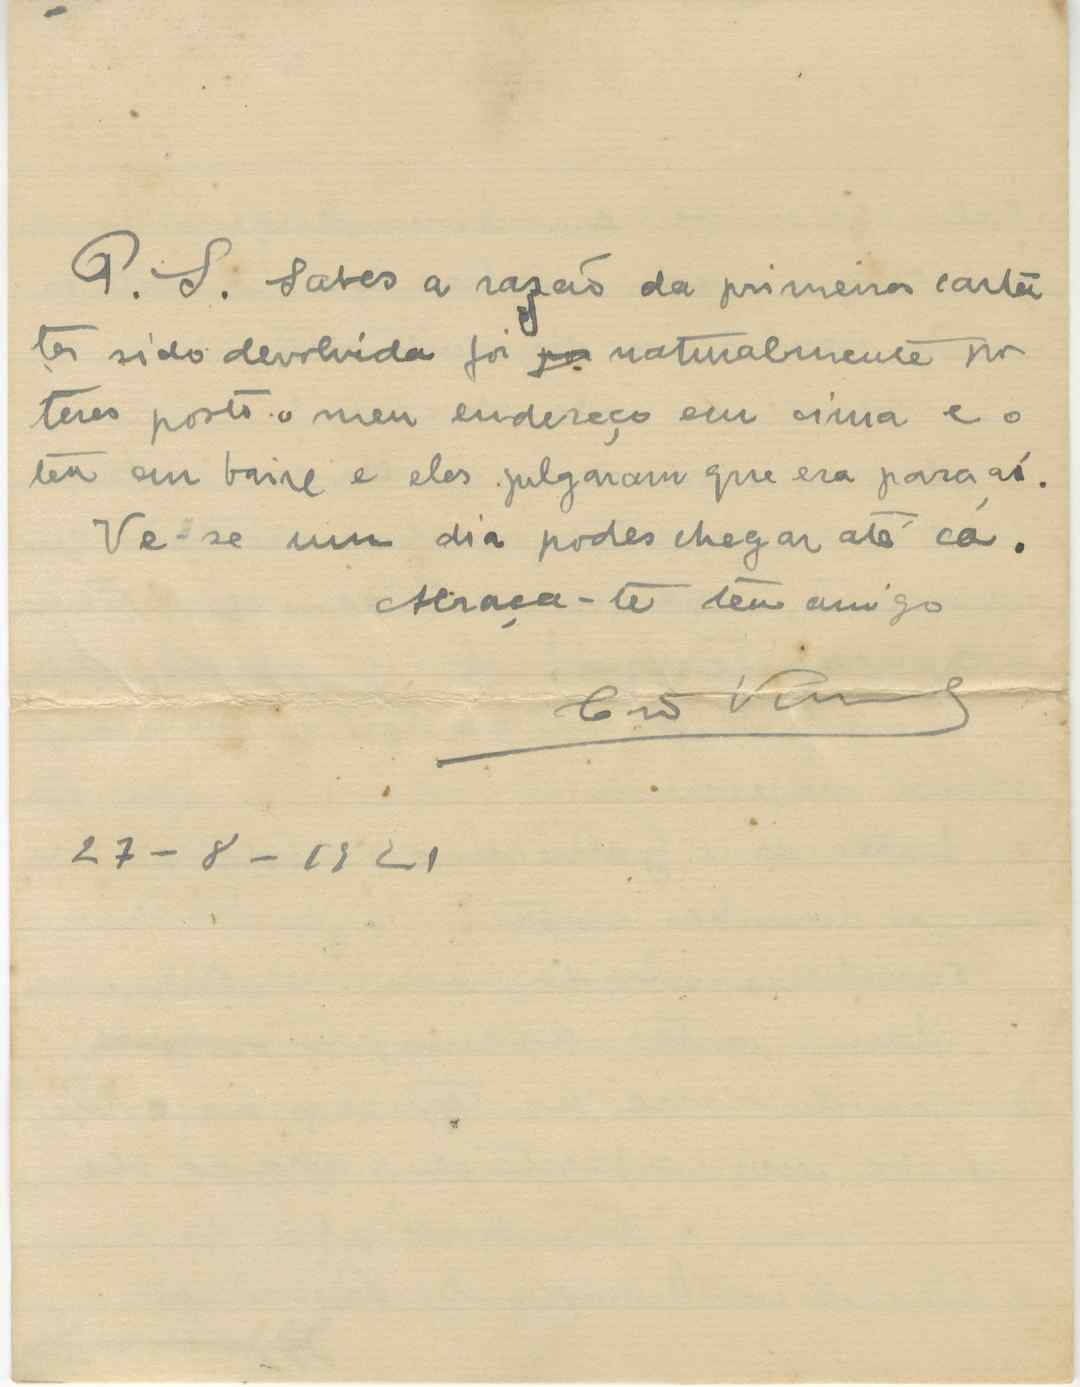 P. S. Sabes a razão da primeira carta
ter sido devolvida foi por naturalmente por
teres posto o meu endereço em cima e o
teu em baixo e eles julgaram que era para aí.
Ve-se um dia podes chegar até cá.
Abraça-te teu amigo
27-8-1921